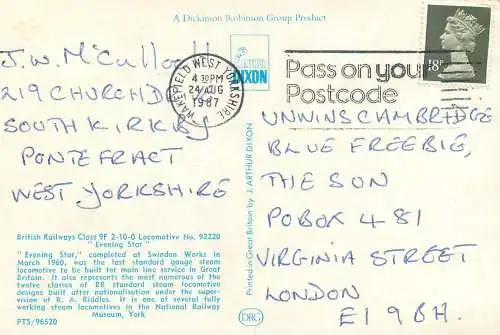 A Dickinson Robinson Group Product
J.W. McCulloch
219 CHURCH DR
SOUTH KIRKBY
PONTEFRACT
WEST YORKSHIRE
DIXON
WAKEFIELD WEST YORKSHIRE
4 30PM
24 AUG
1987
Pass on your
Postcode
18P
UNWINS CAMBRIDGE
BLUE FREEBIE,
THE SUN
PO BOX 481
VIRGINIA STREET
LONDON
E1 9BH.
Printed in Great Britain by J. ARTHUR DIXON
DRG
British Railways Class 9F 2-10-0 Locomotive No. 92220
" Evening Star "
" Evening Star," completed at Swindon Works in
March 1960, was the last standard gauge steam
locomotive to be built for main line service in Great
Britain. It also represents the most numerous of the
twelve classes of BR standard steam locomotive
designs built after nationalisation under the super-
vision of R. A. Riddles. It is one of several fully
working steam locomotives in the National Railway
Museum, York
PT5/96520